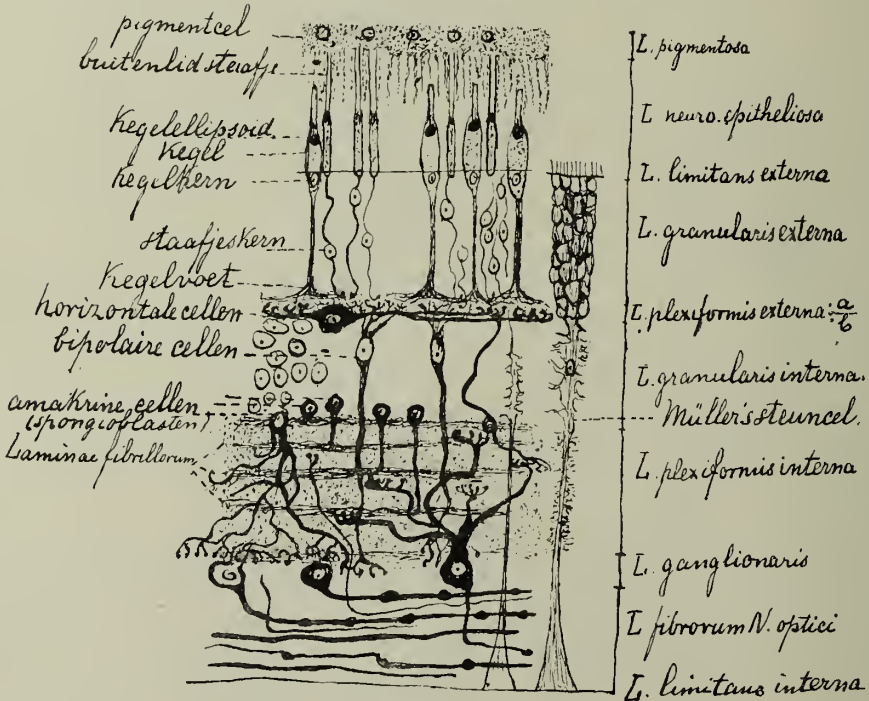 pigmentcel
buitenlid staafje
Kegelellipsoid
Kegel
kegelkern
staafjeskern
Kegelvoet
horizontale cellen
bipolaire cellen
amakrine cellen
(spongioblasten)
Laminae fibrillorum
L. pigmentosa
L neuro.epitheliosa
L. limitans externa
L. granularis externa
L. plexiformis externa: a/b
L. granularis interna.
Müller's steuncel.
L. plexiformis interna
L. ganglionaris
L fibrorum N. optici
L. limitans interna